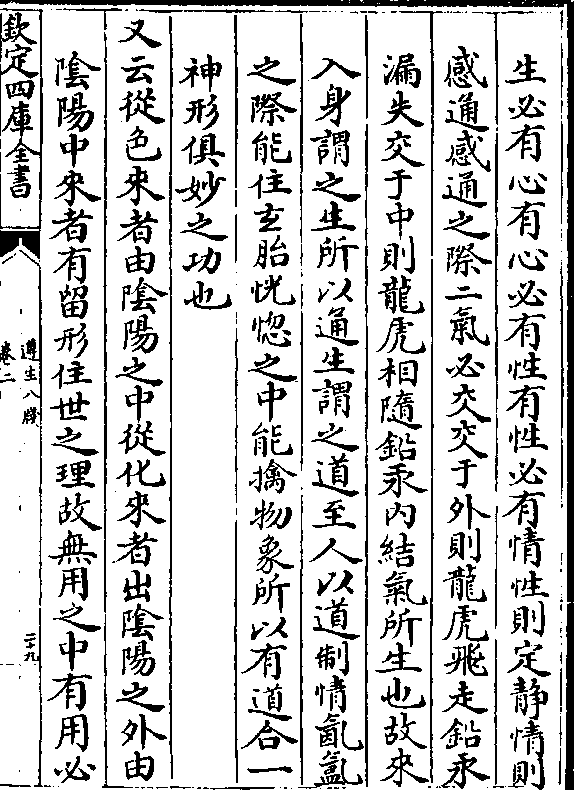 生必有心有心必有性有性必有情性則定靜情則
感通感通之際二氣必交交于外則龍虎飛走鉛汞
漏失交于中則龍虎相隨鉛汞内結氣所生也故來
入身謂之生所以通生謂之道至人以道制情氤氲
之際能住玄胎恍惚之中能擒物象所以有道合一
神形俱妙之功也
又云從色來者由陰陽之中從化來者出陰陽之外由
陰陽中來者有留形住世之理故無用之中有用必
欽定四庫全書
遵生八牋
卷二
二十九